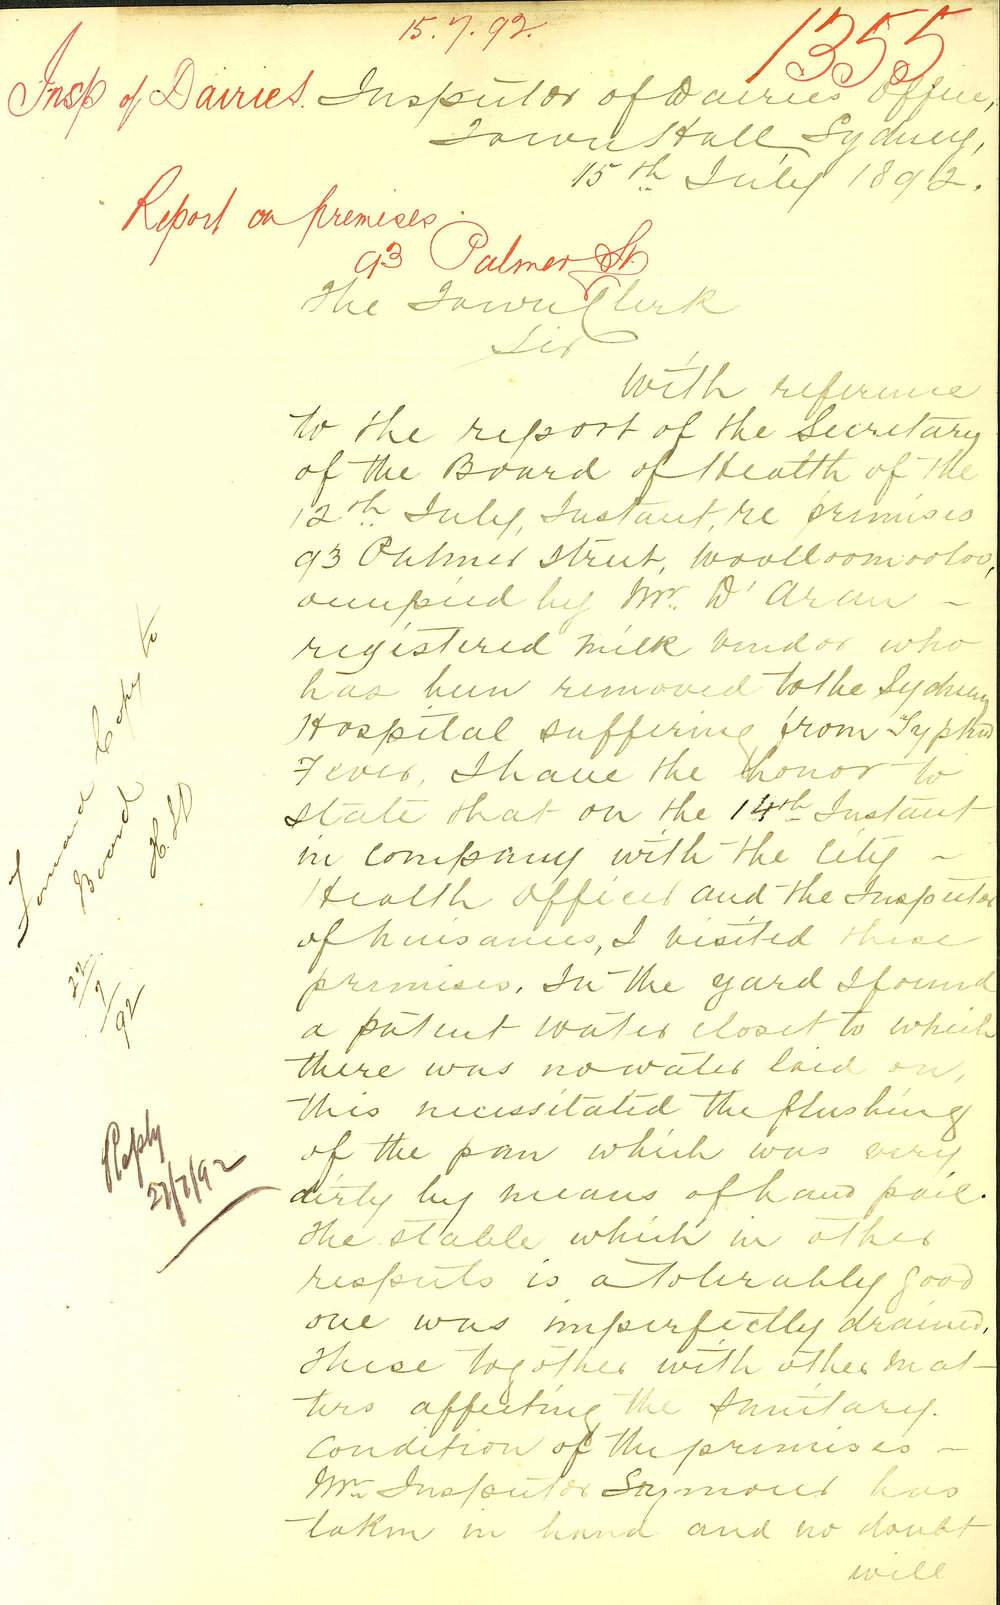 15.7.92.
1355
Insp of Dairies.
Inspector of Dairies Office,
Town Hall Sydney,
15th July 1892.
Report on premises
93 Palmer St.
The Town Clerk
Sir
With reference
to the report of the Secretary
of the Board of Health of the
12th July, Instant, re premises
93 Palmer Street, Woolloomooloo,
occupied by Mr. D'Aran –
registered milk vendor who
has been removed to the Sydney
Hospital suffering from Typhoid
Fever, I have the honor to
state that on the 14th Instant
in company with the City –
Health Officer and the Inspector
of nuisances, I visited these
premises. In the yard I found
a patent water closet to which
there was no water laid on,
this necessitated the flushing
of the pan which was very
dirty by means of hand pail.
The stable which in other
respects is a tolerably good
one was imperfectly drained.
These together with other mat-
ters affecting the Sanitary.
condition of the premises –
Mr. Inspector Seymour has
taken in hand and no doubt
will
Forward Copy to
Board
22/7/92
Reply
27/7/92